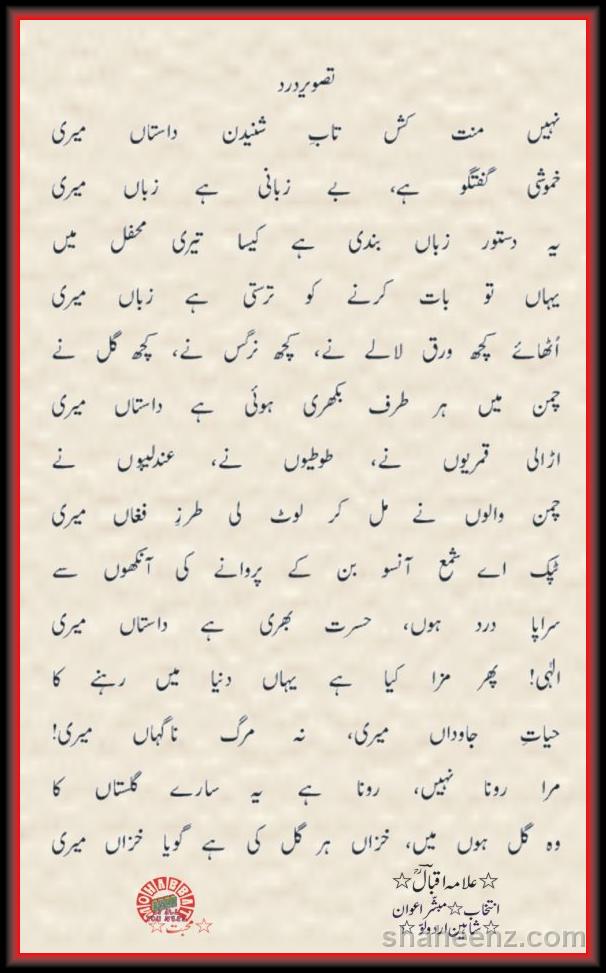 تصویرِ درد
نہیں منت کش تابِ شنیدن داستاں میری
خموشی گفتگو ہے، بے زبانی ہے زباں میری
یہ دستور زباں بندی ہے کیسا تیری محفل میں
یہاں تو بات کرنے کو ترستی ہے زباں میری
اُٹھائے کچھ ورق لالے نے، کچھ نرگس نے، کچھ گل نے
چمن میں ہر طرف بکھری ہوئی ہے داستاں میری
اڑالی قمریوں نے، طوطیوں نے، عندلیبوں نے
چمن والوں نے مل کر لوٹ لی طرزِ فغاں میری
ٹپک اے شمع آنسو بن کے پروانے کی آنکھوں سے
سراپا درد ہوں، حسرت بھری ہے داستاں میری
الٰہی! پھر مزا کیا ہے یہاں دنیا میں رہنے کا
حیاتِ جاوداں میری، نہ مرگ ناگہاں میری!
مرا رونا نہیں، رونا ہے یہ سارے گلستاں کا
وہ گل ہوں میں، خزاں ہر گل کی ہے گویا خزاں میری
☆علامہ اقبالؒ☆
انتخاب☆مبشر اعوان
☆شاہین اردو لَو☆
MOHABBAT
☆محبت☆
shaheenz.com